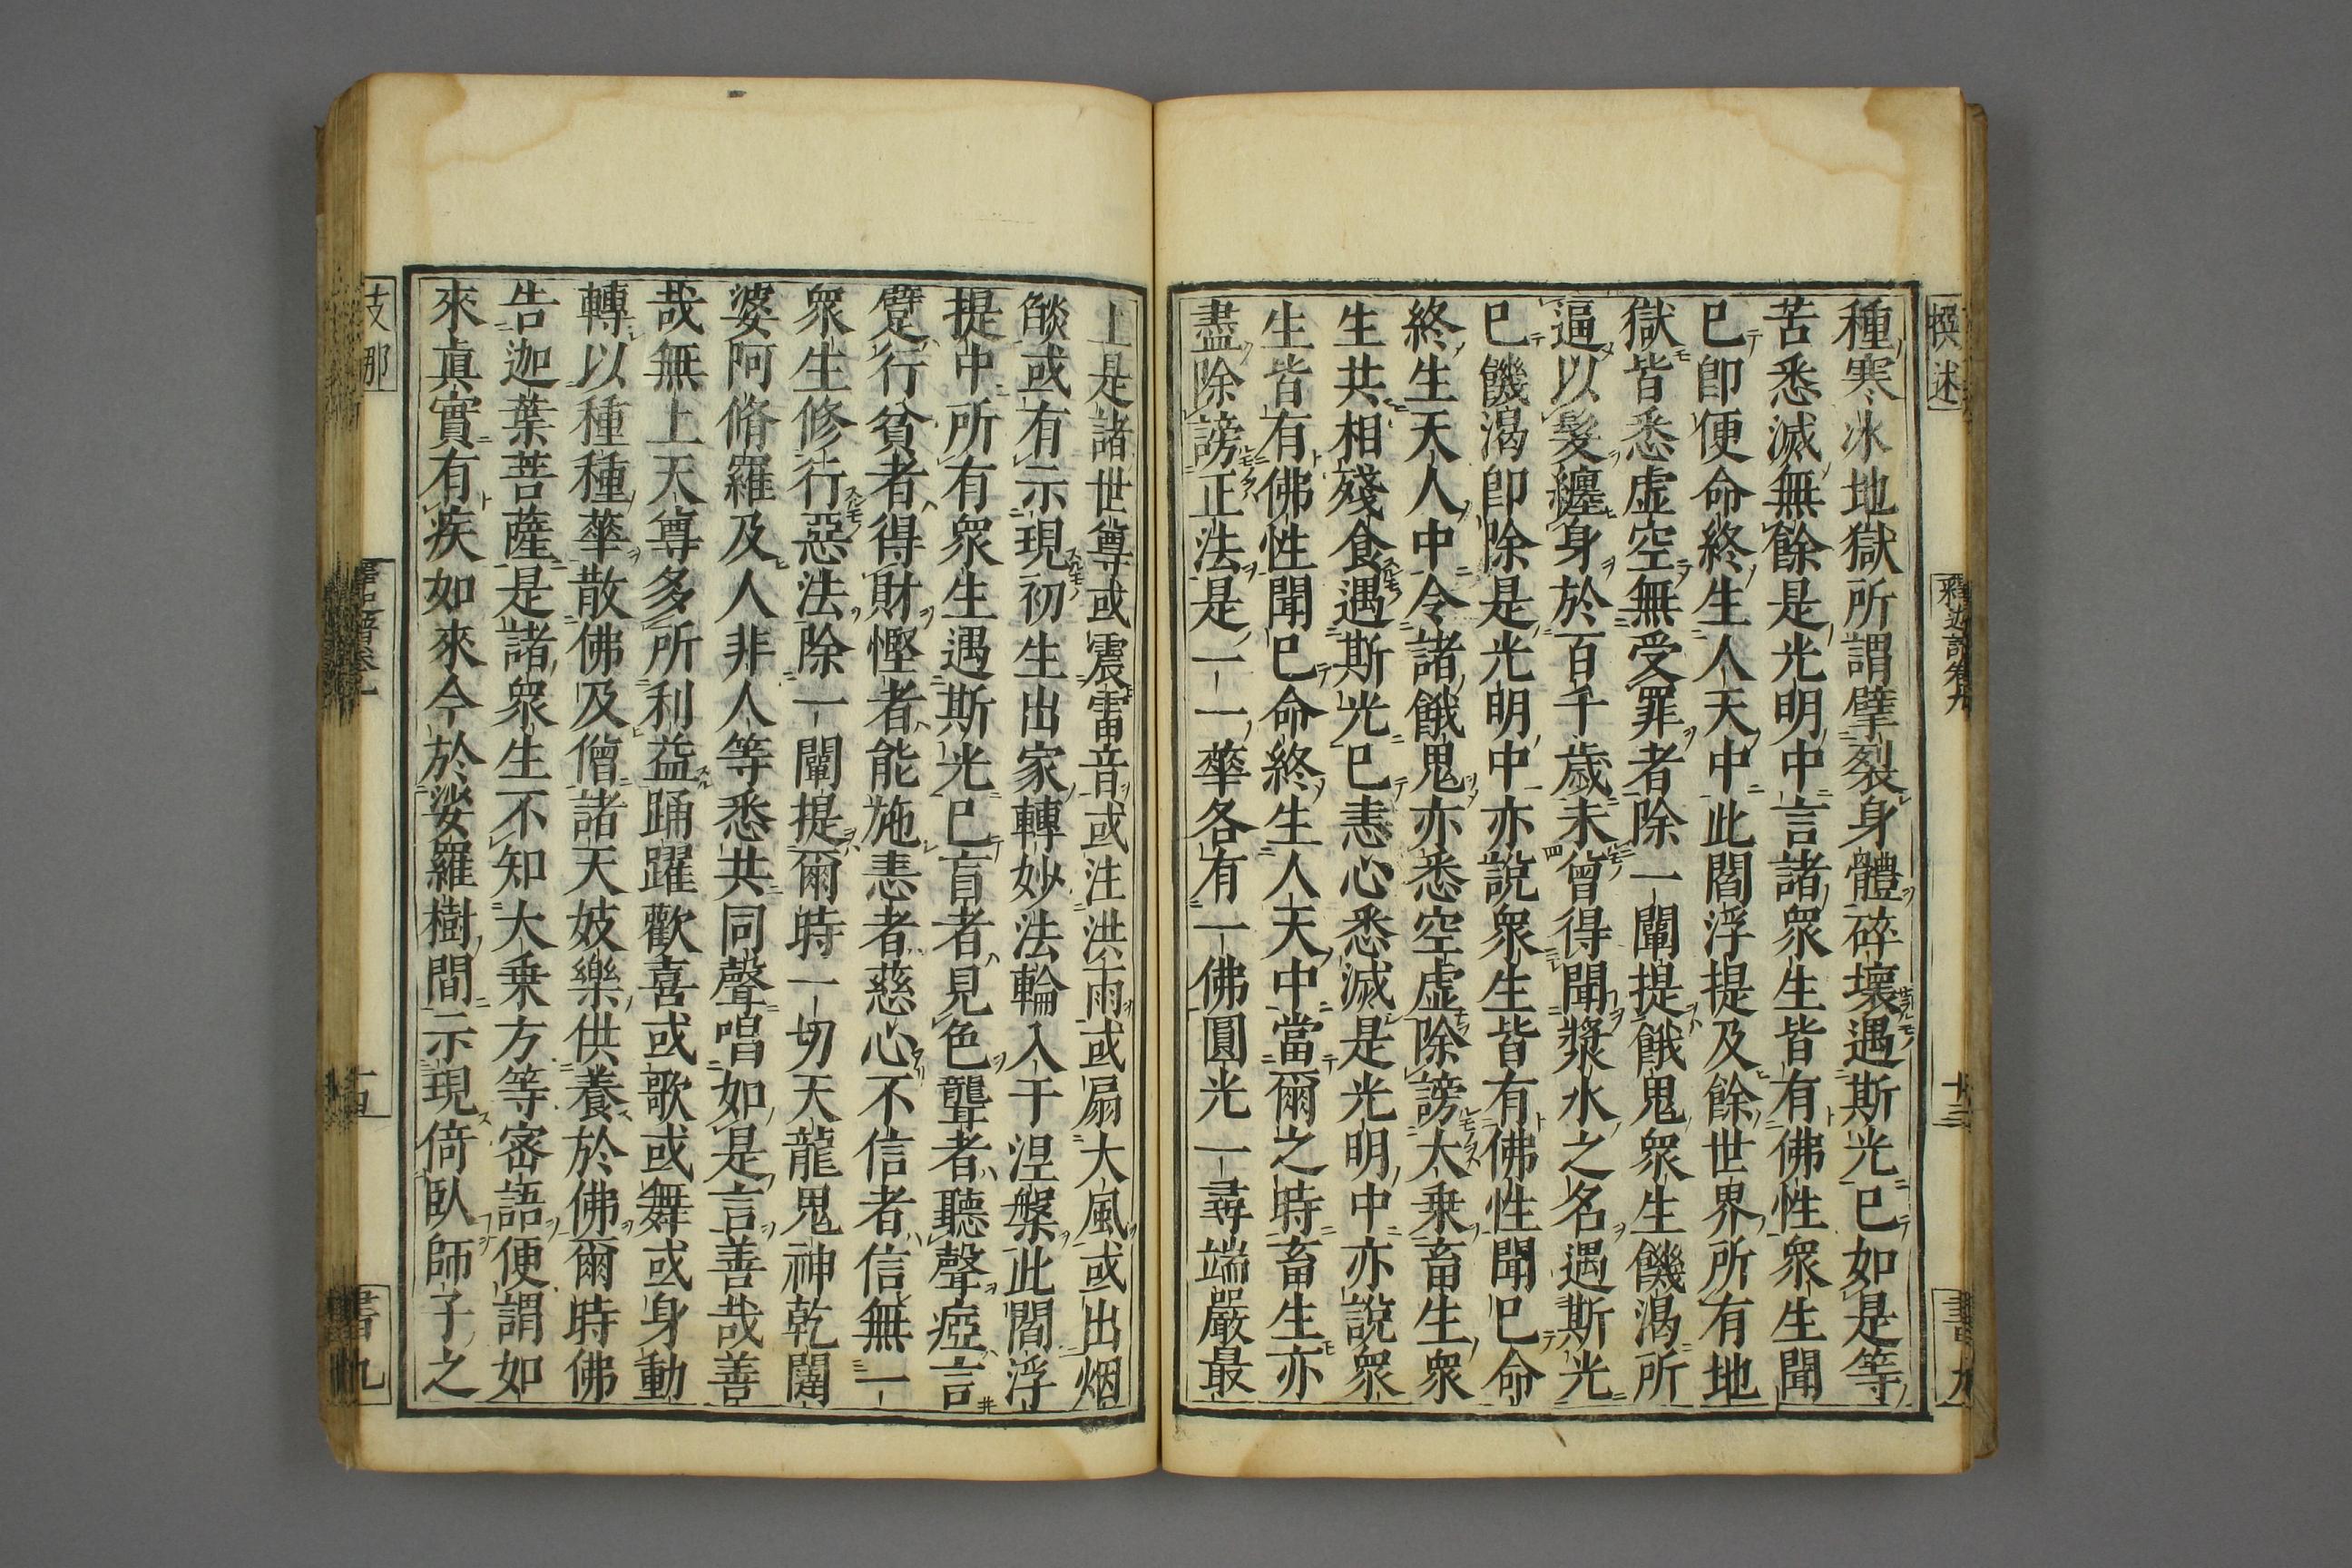 撰述
釋迦譜卷九
十三
書九
種寒氷地獄所謂擘裂身體碎壞遇斯光已如是等
苦悉滅無餘是光明中言諸衆生皆有佛性衆生聞
已卽便命終生人天中此閻浮提及餘世界所有地
獄皆悉虛空無受罪者除一闡提餓鬼衆生饑渴所
逼以髮纏身於百千歲未曾得聞漿水之名遇斯光
已饑渴卽除是光明中亦說衆生皆有佛性聞已命
終生天人中令諸餓鬼亦悉空虛除謗大乘畜生衆
生共相殘食遇斯光已恚心悉滅是光明中亦說衆
生皆有佛性聞已命終生人天中當爾之時畜生亦
盡除謗正法是一一華各有一佛圓光一尋端嚴最
上是諸世尊或震雷音或注洪雨或扇大風或出烟
燄或有示現初生出家轉妙法輪入于涅槃此閻浮
提中所有衆生遇斯光已盲者見色聾者聽聲瘂言
躄行貧者得財慳者能施恚者慈心不信者信無一
衆生修行惡法除一闡提爾時一切天龍鬼神乾闥
婆阿脩羅及人非人等悉共同聲唱如是言善哉善
哉無上天尊多所利益踊躍歡喜或歌或舞或身動
轉以種種華散佛及僧諸天妓樂供養於佛爾時佛
告迦葉菩薩是諸衆生不知大乘方等密語便謂如
來真實有疾如來今於娑羅樹間示現倚臥師子之
支那
書九